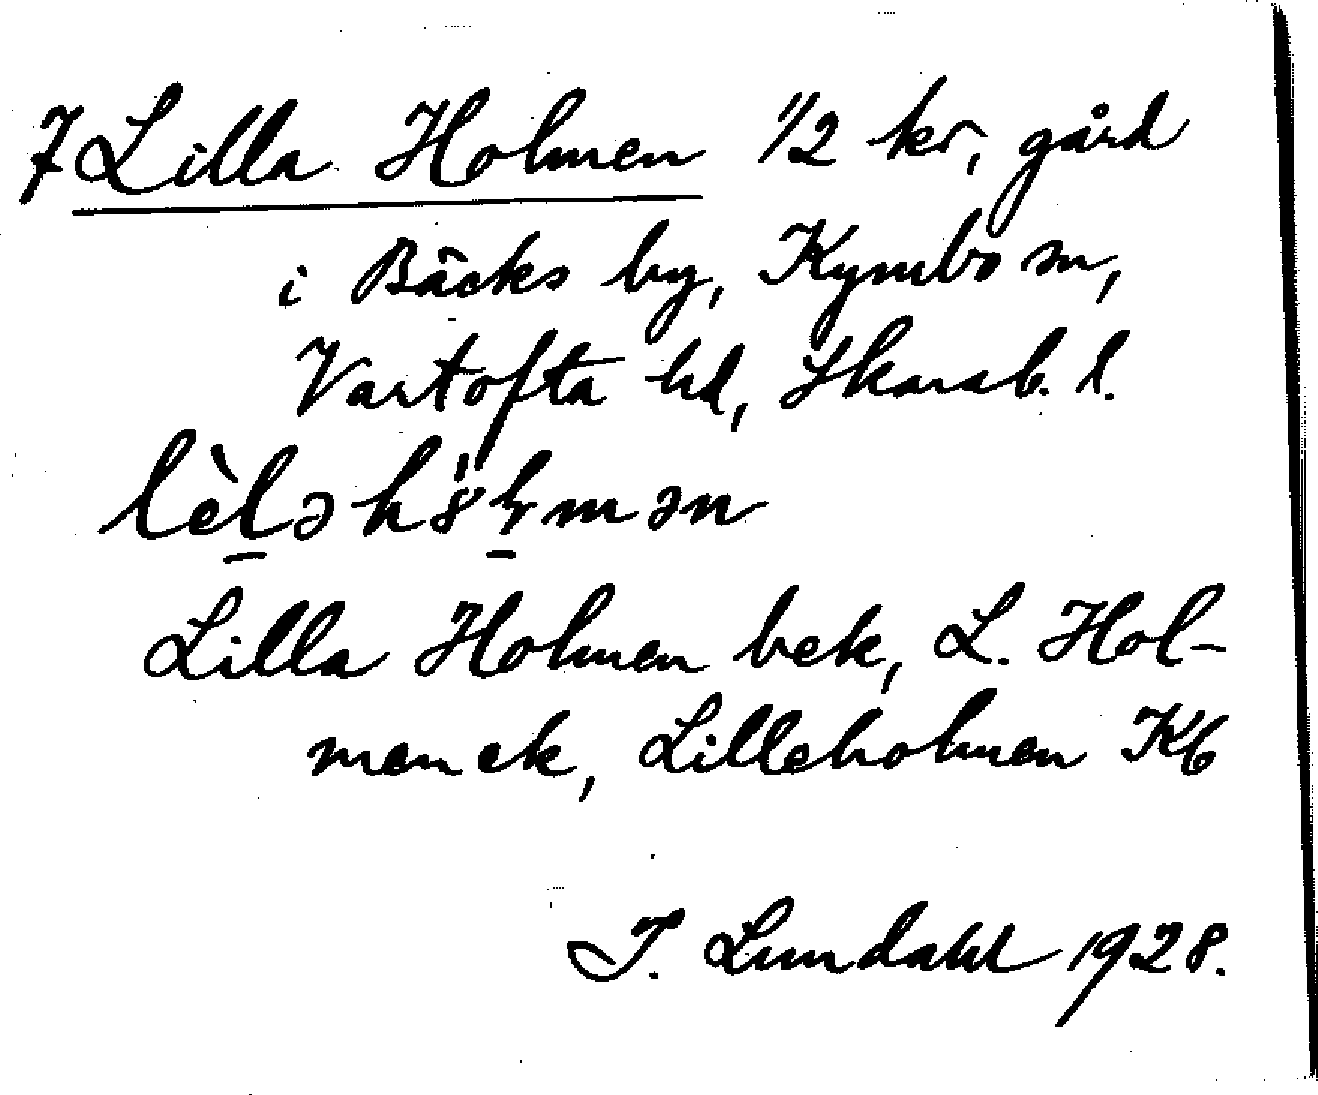 7 Lilla Holmen 1/2 kr, gård
i Bäcks by, Kymbo sn,
Vartofta hd, Skarab. l.
Lilla Holmen bek, L. Hol-
men ek, Lilleholmen Kb
I. Lundahl 1928.